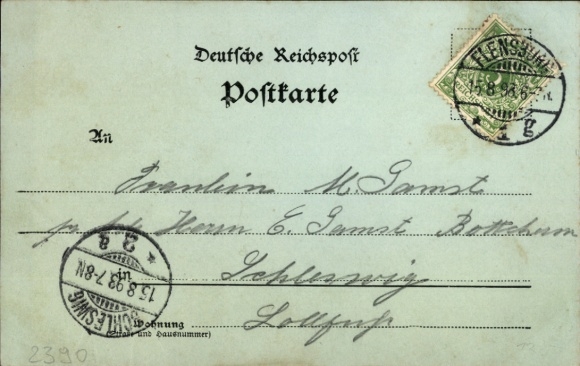 Deutsche Reichspost
Postkarte
FLENSBURG
15.8.98.6-7N.
* 1 g
An
Fraulein M. Gamst
Herrn E. Gamst
in Schleswig
Lollfuß
Wohnung
(Straße und Hausnummer)
* 2 a
15.8.98.7-8N
SCHLESWIG
2390